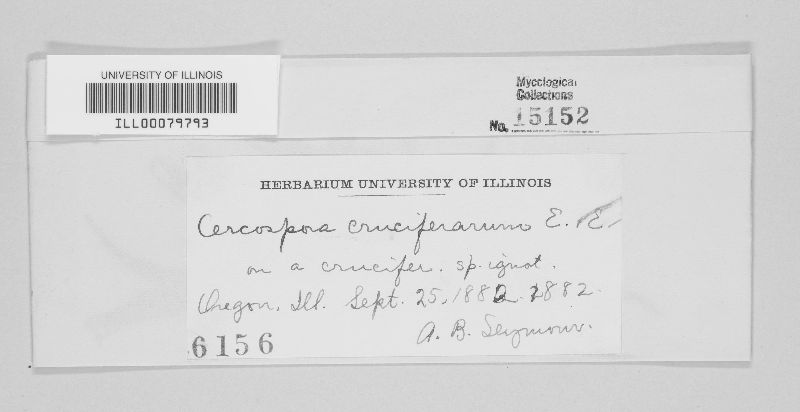 UNIVERSITY OF ILLINOIS
ILL00079793
Mycological
Collections
No. 15152
HERBARIUM UNIVERSITY OF ILLINOIS
Cercospora cruciferarum E. E.
on a crucifer. sp. ignot.
Oregon, Ill. Sept. 25, 1882. 1882.
A. B. Seymour.
6156